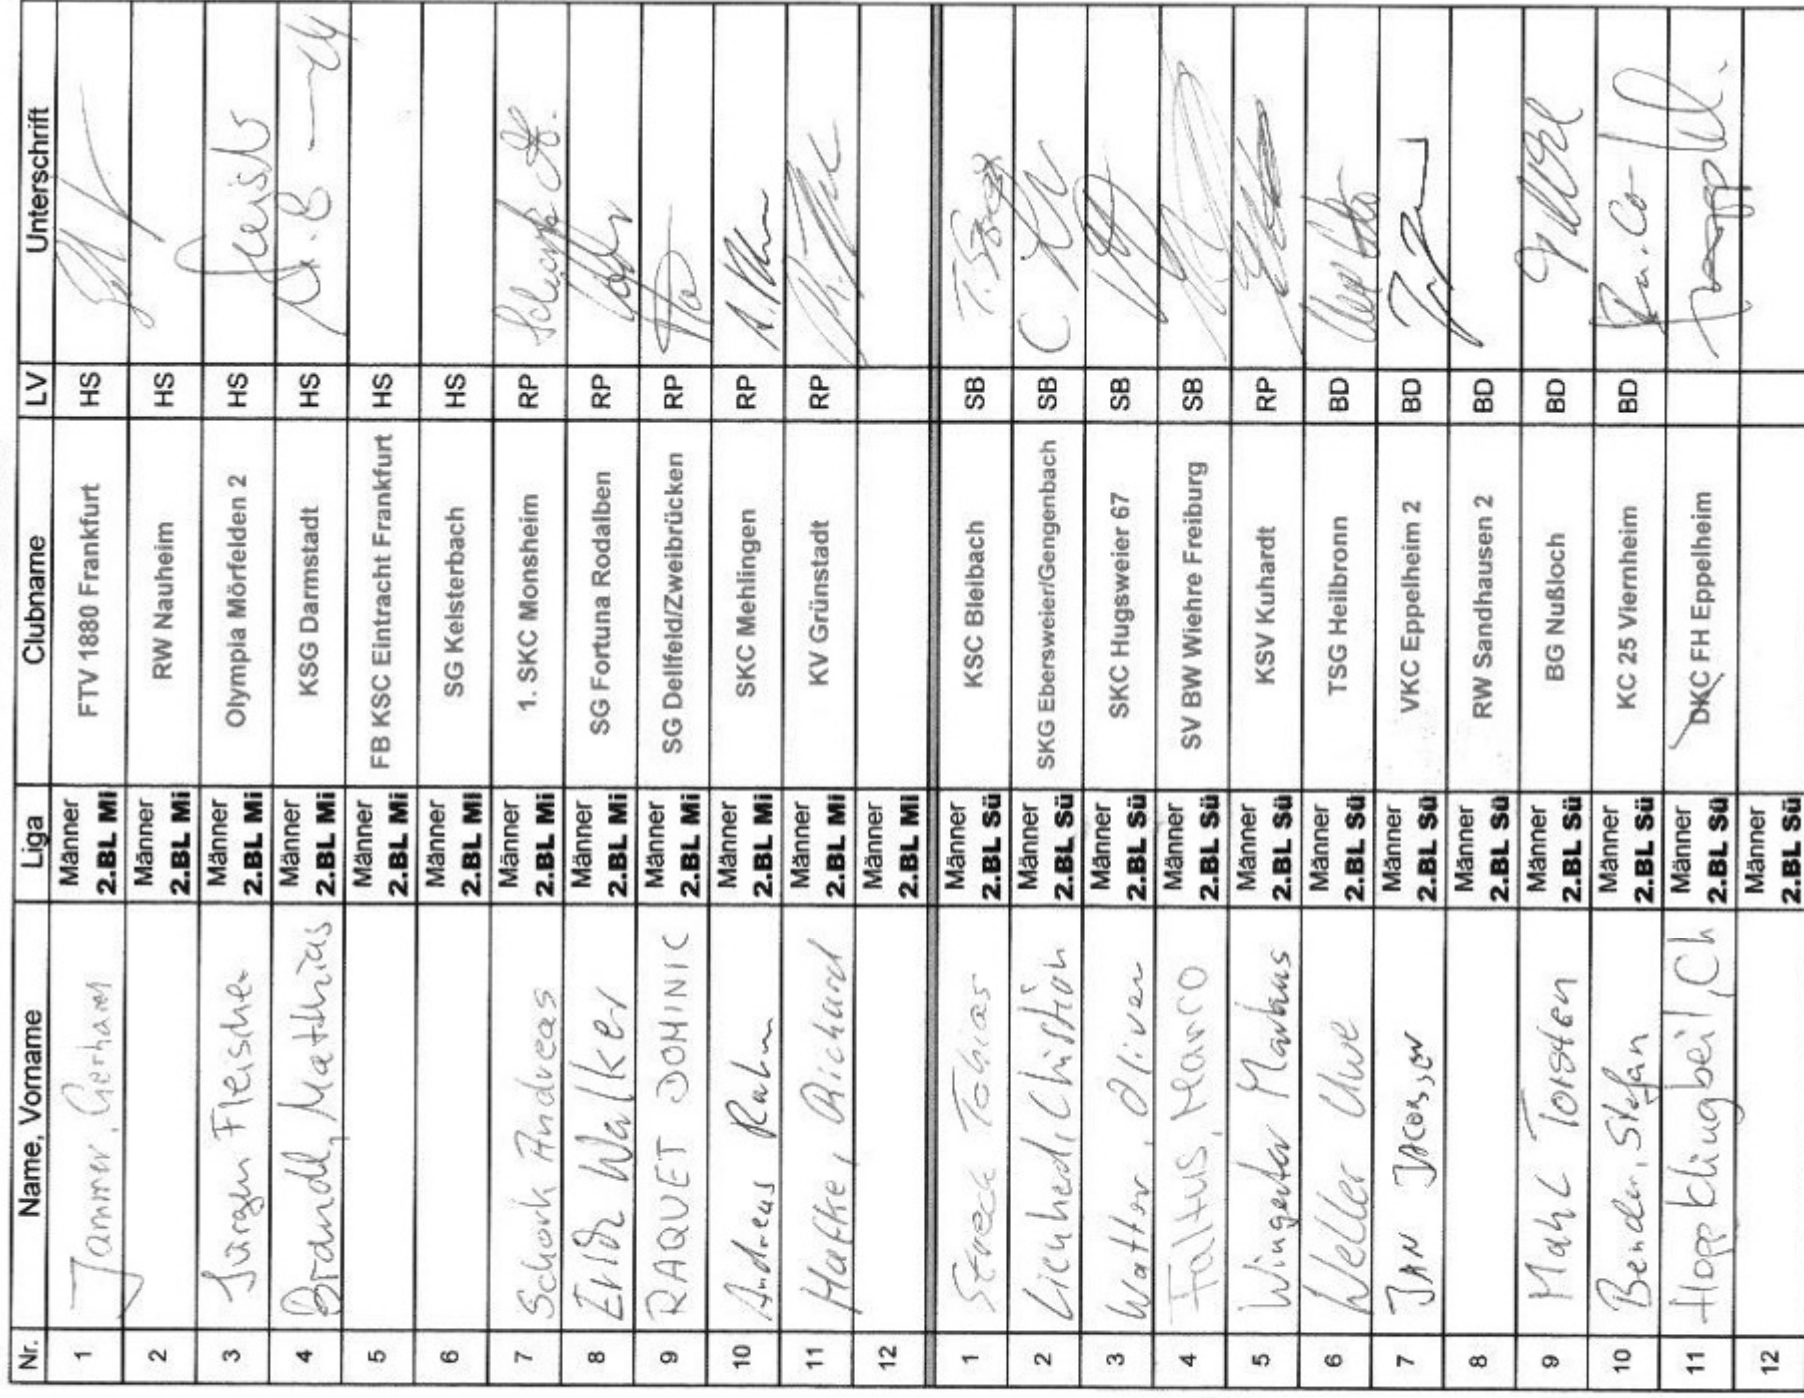 Nr. Name, Vorname Liga Clubname LV Unterschrift
1 Jammer, Gerhard Männer 2.BL Mi FTV 1880 Frankfurt HS
2 Männer 2.BL Mi RW Nauheim HS
3 Jürgen Fleischer Männer 2.BL Mi Olympia Mörfelden 2 HS
4 Brandl, Matthias Männer 2.BL Mi KSG Darmstadt HS
5 Männer 2.BL Mi FB KSC Eintracht Frankfurt HS
6 Männer 2.BL Mi SG Kelsterbach HS
7 Schork Andreas Männer 2.BL Mi 1. SKC Monsheim RP
8 Walker Männer 2.BL Mi SG Fortuna Rodalben RP
9 RAQUET DOMINIC Männer 2.BL Mi SG Dellfeld/Zweibrücken RP
10 Andreas Rahm Männer 2.BL Mi SKC Mehlingen RP
11 Richard Männer 2.BL Mi KV Grünstadt RP
12 Männer 2.BL Mi
1 Streck Tobias Männer 2.BL Sü KSC Bleibach SB
2 Lienhard, Christian Männer 2.BL Sü SKG Ebersweier/Gengenbach SB
3 Oliver Männer 2.BL Sü SKC Hugsweier 67 SB
4 Faltus, Marco Männer 2.BL Sü SV BW Wiehre Freiburg SB
5 Wingerter Markus Männer 2.BL Sü KSV Kuhardt RP
6 Weller Uwe Männer 2.BL Sü TSG Heilbronn BD
7 JAN JACOBSEN Männer 2.BL Sü VKC Eppelheim 2 BD
8 Männer 2.BL Sü RW Sandhausen 2 BD
9 Mahl Torsten Männer 2.BL Sü BG Nußloch BD
10 Bender, Stefan Männer 2.BL Sü KC 25 Viernheim BD
11 Hopp Klingbeil, Ch Männer 2.BL Sü DKC FH Eppelheim
12 Männer 2.BL Sü